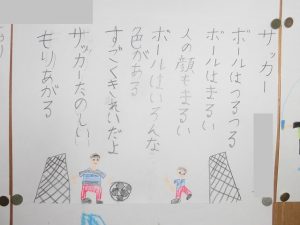 サッカー
ボールはつるつる
ボールはまるい
人の顔もまるい
ボールはいろんな
色がある
すごくきれいだよ
サッカーたのしい
もりあがる